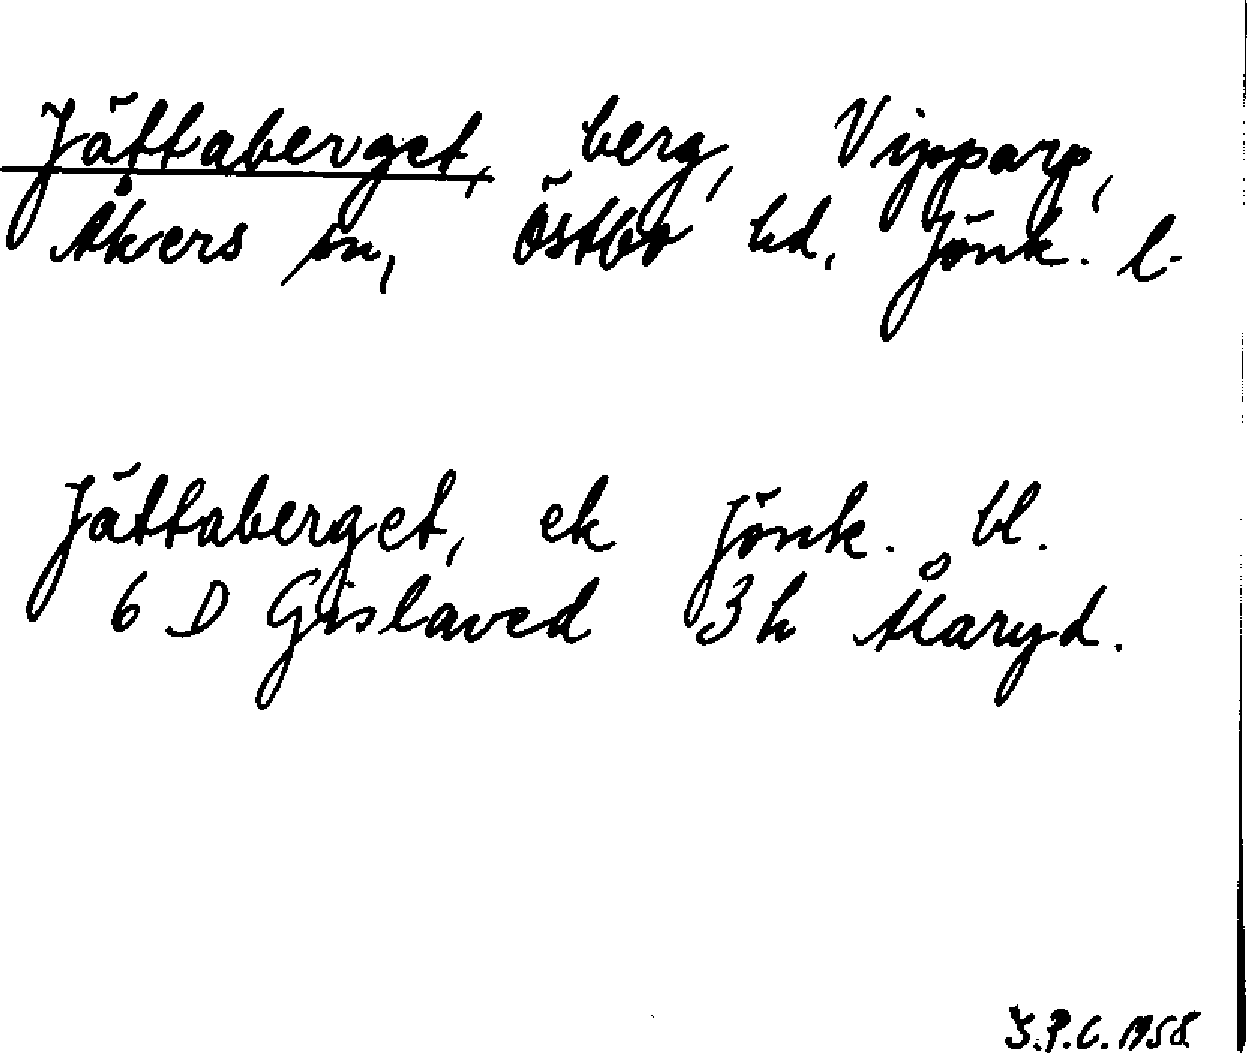 Jättaberget, berg, Vipparp,
Åkers sn, Östbo hd, Jönk. l.
Jättaberget, ek Jönk. bl.
6 D Gislaved 3h Ålaryd.
J.P.C. 1958